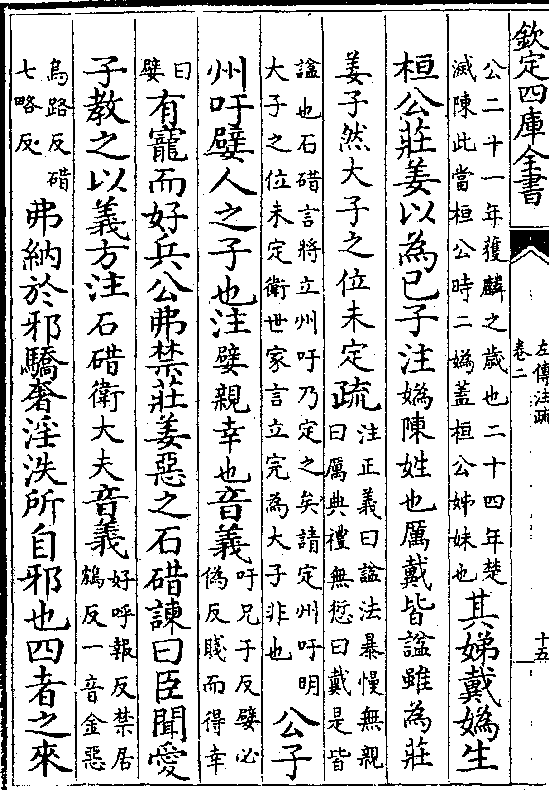 欽定四庫全書
左傳注疏
卷二
十五
公二十一年獲麟之歲也二十四年楚
滅陳此當桓公時二媯蓋桓公姊妹也
其娣戴媯生
桓公莊姜以為己子注媯陳姓也厲戴皆諡雖為莊
姜子然大子之位未定疏
注正義曰諡法暴慢無親
曰厲典禮無愆曰戴是皆
諡也石碏言將立州吁乃定之矣請定州吁明
大子之位未定衛世家言立完為大子非也
公子
州吁嬖人之子也注嬖親幸也音義
吁兄于反嬖必
偽反賤而得幸
曰
嬖
有寵而好兵公弗禁莊姜惡之石碏諫曰臣聞愛
子教之以義方注石碏衛大夫音義
好呼報反禁居
鴆反一音金惡
烏路反碏
七略反
弗納於邪驕奢淫泆所自邪也四者之來